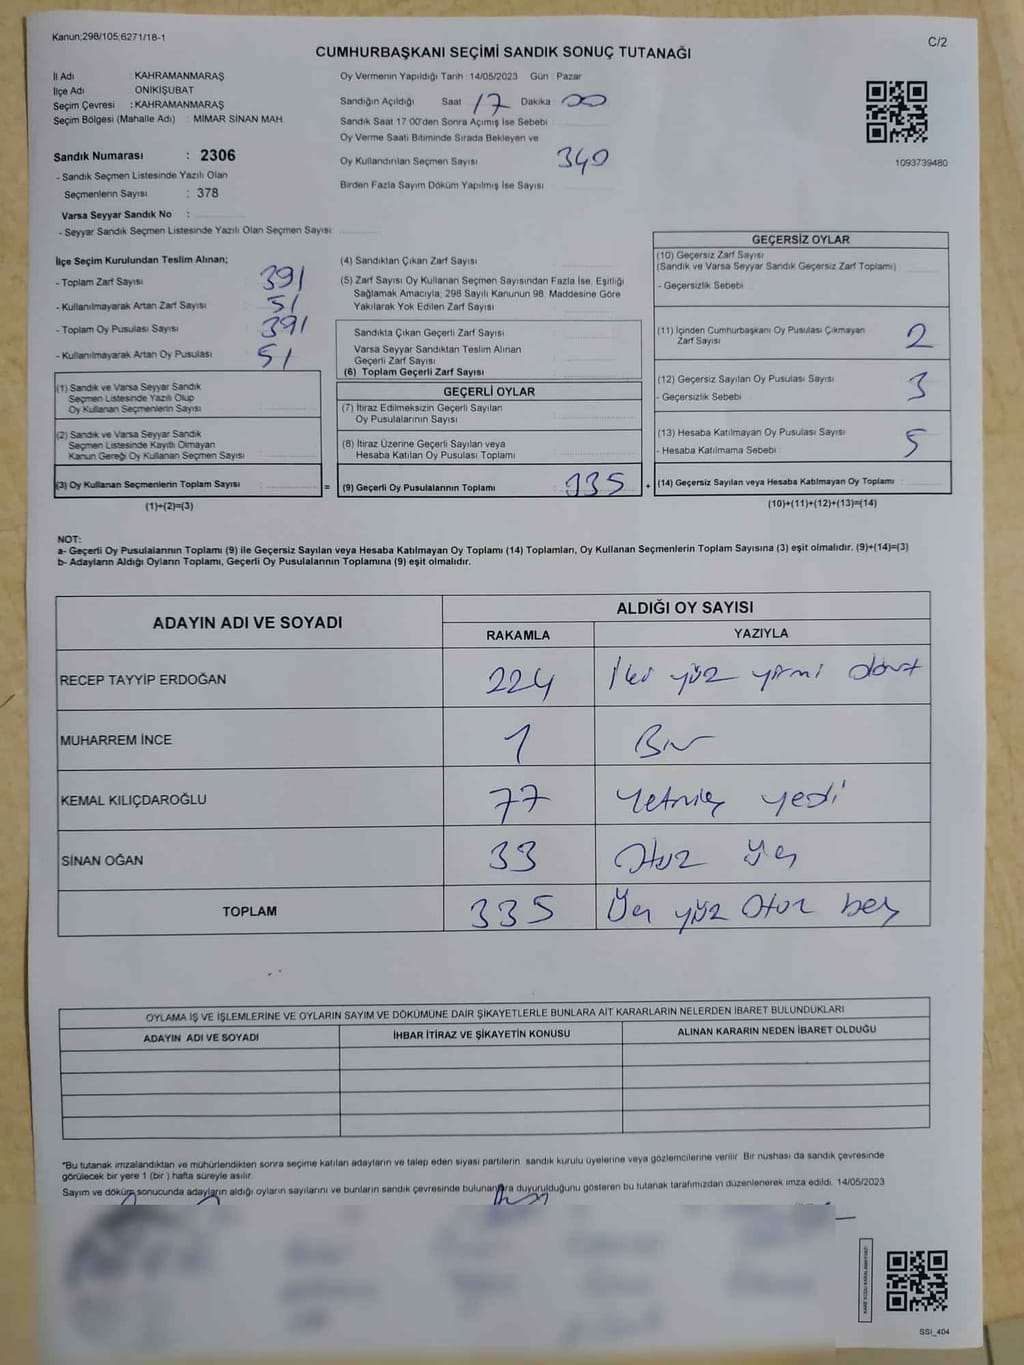 Kanun;298/105;6271/18-1
C/2
CUMHURBAŞKANI SEÇİMİ SANDIK SONUÇ TUTANAĞI
İl Adı KAHRAMANMARAŞ
İlçe Adı ONİKİŞUBAT
Seçim Çevresi : KAHRAMANMARAŞ
Seçim Bölgesi (Mahalle Adı) : MİMAR SİNAN MAH
Sandık Numarası : 2306
- Sandık Seçmen Listesinde Yazılı Olan
Seçmenlerin Sayısı : 378
Varsa Seyyar Sandık No :
- Seyyar Sandık Seçmen Listesinde Yazılı Olan Seçmen Sayısı:
Oy Vermenin Yapıldığı Tarih 14/05/2023 Gün : Pazar
Sandığın Açıldığı Saat 17 Dakika 00
Sandık Saat 17 00'den Sonra Açımış İse Sebebi
Oy Verme Saati Bitiminde Sırada Bekleyen ve
Oy Kullandırılan Seçmen Sayısı 340
Birden Fazla Sayım Döküm Yapılmış İse Sayısı
1093739480
İlçe Seçim Kurulundan Teslim Alınan;
- Toplam Zarf Sayısı 391
- Kullanılmayarak Artan Zarf Sayısı 51
- Toplam Oy Pusulası Sayısı 391
- Kullanılmayarak Artan Oy Pusulası 51
(1) Sandık ve Varsa Seyyar Sandık
Seçmen Listesinde Yazılı Olup
Oy Kullanan Seçmenlerin Sayısı
(2) Sandık ve Varsa Seyyar Sandık
Seçmen Listesinde Kayıtlı Olmayan
Kanun Gereği Oy Kullanan Seçmen Sayısı
(3) Oy Kullanan Seçmenlerin Toplam Sayısı =
(1)+(2)=(3)
(4) Sandıktan Çıkan Zarf Sayısı
(5) Zarf Sayısı Oy Kullanan Seçmen Sayısından Fazla İse, Eşitliği
Sağlamak Amacıyla, 298 Sayılı Kanunun 98. Maddesine Göre
Yakılarak Yok Edilen Zarf Sayısı
Sandıkta Çıkan Geçerli Zarf Sayısı
Varsa Seyyar Sandıktan Teslim Alınan
Geçerli Zarf Sayısı
(6) Toplam Geçerli Zarf Sayısı
GEÇERLİ OYLAR
(7) İtiraz Edilmeksizin Geçerli Sayılan
Oy Pusulalarının Sayısı
(8) İtiraz Üzerine Geçerli Sayılan veya
Hesaba Katılan Oy Pusulası Toplamı
(9) Geçerli Oy Pusulalarının Toplamı 335 +
GEÇERSİZ OYLAR
(10) Geçersiz Zarf Sayısı
(Sandık ve Varsa Seyyar Sandık Geçersiz Zarf Toplamı)
- Geçersizlik Sebebi
(11) İçinden Cumhurbaşkanı Oy Pusulası Çıkmayan
Zarf Sayısı 2
(12) Geçersiz Sayılan Oy Pusulası Sayısı 3
- Geçersizlik Sebebi
(13) Hesaba Katılmayan Oy Pusulası Sayısı 5
- Hesaba Katılmama Sebebi
(14) Geçersiz Sayılan veya Hesaba Katılmayan Oy Toplamı
(10)+(11)+(12)+(13)=(14)
NOT:
a- Geçerli Oy Pusulalarının Toplamı (9) ile Geçersiz Sayılan veya Hesaba Katılmayan Oy Toplamı (14) Toplamları, Oy Kullanan Seçmenlerin Toplam Sayısına (3) eşit olmalıdır. (9)+(14)=(3)
b- Adayların Aldığı Oyların Toplamı, Geçerli Oy Pusulalarının Toplamına (9) eşit olmalıdır.
ADAYIN ADI VE SOYADI ALDIĞI OY SAYISI
RAKAMLA YAZIYLA
RECEP TAYYİP ERDOĞAN 224 İki yüz yirmi dört
MUHARREM İNCE 1 Bir
KEMAL KILIÇDAROĞLU 77 Yetmiş yedi
SİNAN OĞAN 33 Otuz üç
TOPLAM 335 Üç yüz Otuz beş
OYLAMA İŞ VE İŞLEMLERİNE VE OYLARIN SAYIM VE DÖKÜMÜNE DAİR ŞİKAYETLERLE BUNLARA AİT KARARLARIN NELERDEN İBARET BULUNDUKLARI
ADAYIN ADI VE SOYADI İHBAR İTİRAZ VE ŞİKAYETİN KONUSU ALINAN KARARIN NEDEN İBARET OLDUĞU
*Bu tutanak imzalandıktan ve mühürlendikten sonra seçime katılan adayların ve talep eden siyasi partilerin sandık kurulu üyelerine veya gözlemcilerine verilir Bir nüshası da sandık çevresinde
görülecek bir yere 1 (bir) hafta süreyle asılır
Sayım ve döküm sonucunda adayların aldığı oyların sayılarını ve bunların sandık çevresinde bulunanlara duyurulduğunu gösteren bu tutanak tarafımızdan düzenlenerek imza edildi. 14/05/2023
SSİ_404